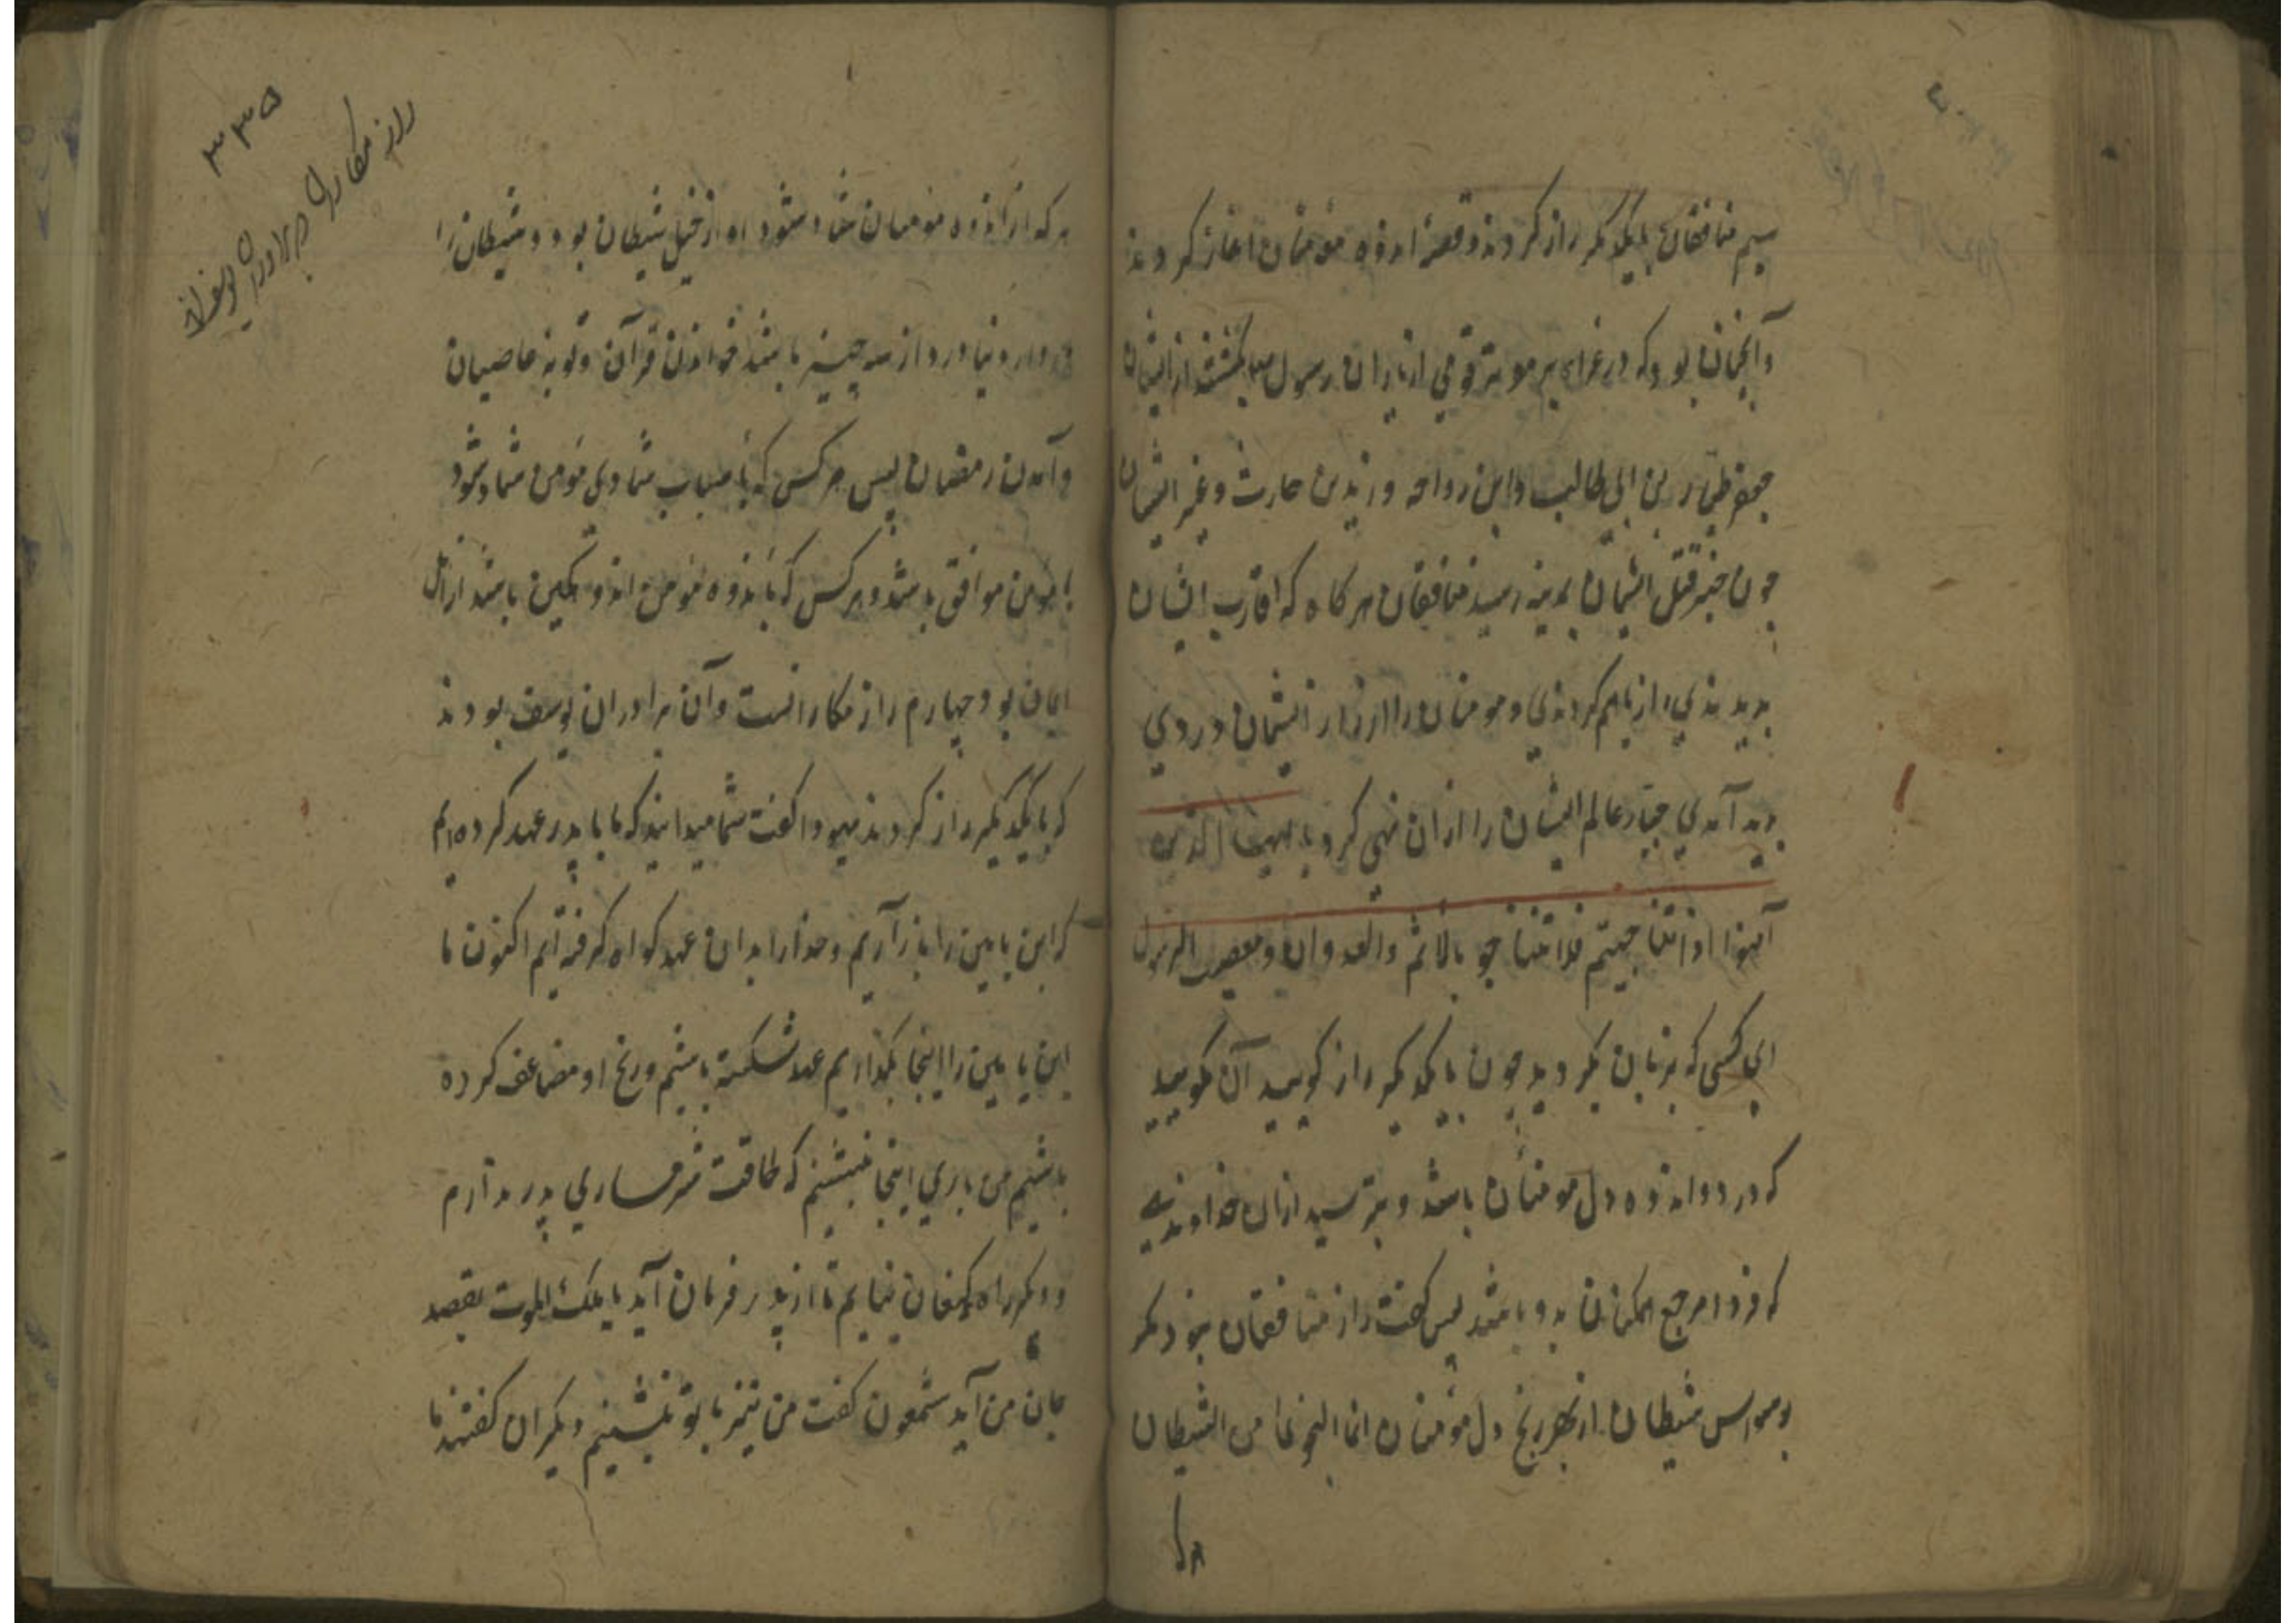 سیم منافقان بایکدیکر راز کردند و قصهٔ اندوه مؤمنان اغاز کردند
و آنچنان بود که در غزای بر موته قومی از یاران رسول بکشتند از ایشان
جعفر طیار بن ابی طالب و ابن رواحه و زید بن حارث و غیر ایشان
چون خبر قتل ایشان بمدینه رسید منافقان هر کاه که اقارب ایشان
بدیدندی راز باهم کردندی و مومنان را از راز ایشان دردی
پدید آمدی جبار عالم ایشان را ازان نهی کرد یا ایها الذین
آمنوا اذا تناجیتم فلا تتناجو بالاثم والعدوان و معصیت الرسول
ای کسی که بزبان بگرویدید چون بایکدیکر راز کویید آن مکویید
که درد و اندوه دل مومنان باشد و بترسید ازان خداوندیکه
که فردا مرجع همکنان بدو باشد پس کفت راز منافقان نبود مکر
بوسواس شیطان از بهر رنج دل مؤمنان انما النجوی من الشیطان
هر که
۳۳۵
راز مکاران برادران یوسف اند
هر که از اندوه مومنان شاد شود او از خیل شیطان بود و شیطان را
درد از سه چیز باشد خواندن قرآن و توبهٔ عاصیان
و آمدن رمضان پس هر کس که باسباب شادی مؤمن شاد شود
با مؤمن موافق باشد و هر کس که باندوه مؤمن اندوهکین باشد از اهل
ایمان بود چهارم راز مکارانست و آن برادران یوسف بودند
که بایکدیکر راز کردند یهودا کفت شما میدانید که ما با پدر عهد کرده ایم
که ابن یامین را باز آریم و خدا را بدان عهد کواه کرفته ایم اکنون ما
ابن یامین را اینجا بگذاریم عهد شکسته باشیم و رنج او مضاعف کرده
باشیم من باری اینجا بنشینم که طاقت شرمساری پدر ندارم
و دیکر راه کنعان نیایم تا از پدر فرمان آید یا ملک الموت بقصد
جان من آید شمعون کفت من نیز با تو بنشینم دیکران کفتند ما